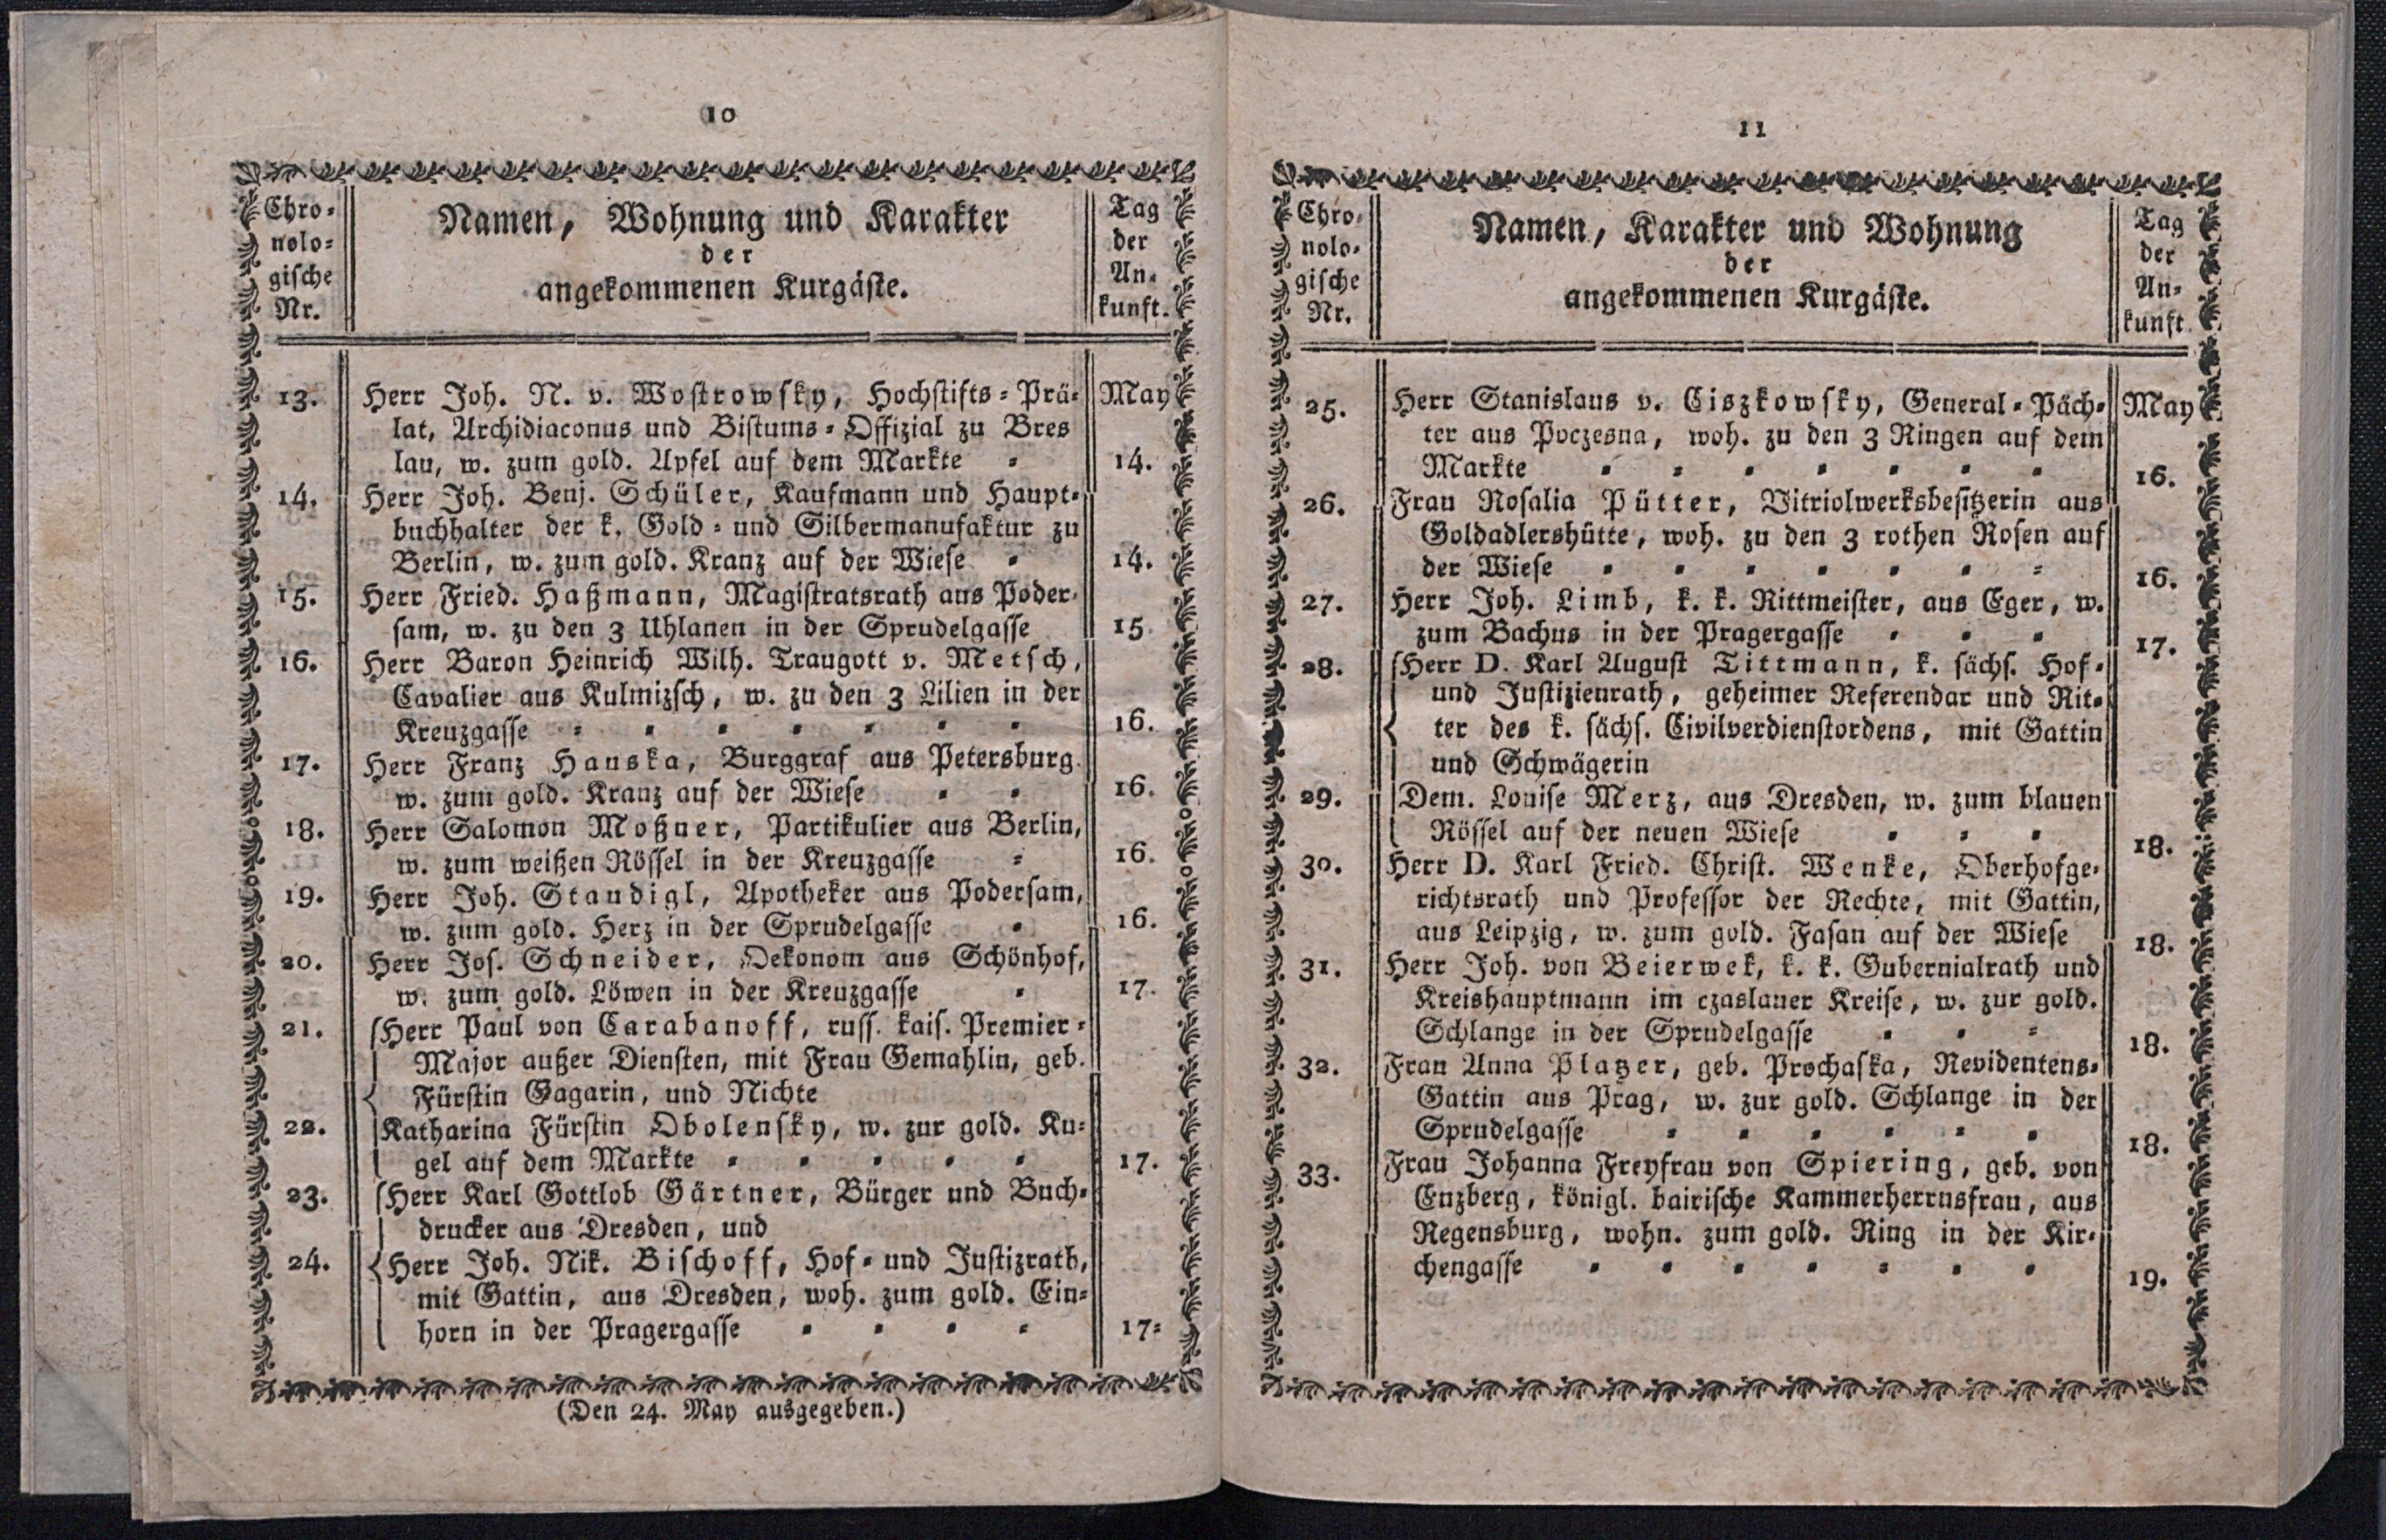 10
Chro-
nolo-
gische
Nr.
Namen, Wohnung und Karakter
der
angekommenen Kurgäste.
Tag
der
An-
kunft.
13. Herr Joh. N. v. Wostrowsky, Hochstifts-Prä- May
lat, Archidiaconus und Bistums-Offizial zu Bres
lau, w. zum gold. Apfel auf dem Markte 14.
14. Herr Joh. Benj. Schüler, Kaufmann und Haupt-
buchhalter der k. Gold- und Silbermanufaktur zu
Berlin, w. zum gold. Kranz auf der Wiese 14.
15. Herr Fried. Haßmann, Magistratsrath aus Poder-
sam, w. zu den 3 Uhlanen in der Sprudelgasse 15
16. Herr Baron Heinrich Wilh. Traugott v. Metsch,
Cavalier aus Kulmizsch, w. zu den 3 Lilien in der
Kreuzgasse 16.
17. Herr Franz Hauska, Burggraf aus Petersburg.
w. zum gold. Kranz auf der Wiese 16.
18. Herr Salomon Moßner, Partikulier aus Berlin,
w. zum weißen Rössel in der Kreuzgasse 16.
19. Herr Joh. Staudigl, Apotheker aus Podersam,
w. zum gold. Herz in der Sprudelgasse 16.
20. Herr Jos. Schneider, Oekonom aus Schönhof,
w. zum gold. Löwen in der Kreuzgasse 17.
21. Herr Paul von Carabanoff, russ. kais. Premier-
Major außer Diensten, mit Frau Gemahlin, geb.
Fürstin Gagarin, und Nichte
22. Katharina Fürstin Obolensky, w. zur gold. Ku-
gel auf dem Markte 17.
23. Herr Karl Gottlob Gärtner, Bürger und Buch-
drucker aus Dresden, und
24. Herr Joh. Nik. Bischoff, Hof- und Justizrath,
mit Gattin, aus Dresden, woh. zum gold. Ein-
horn in der Pragergasse 17-
(Den 24. May ausgegeben.)
11
Chro-
nolo-
gische
Nr.
Namen, Karakter und Wohnung
der
angekommenen Kurgäste.
Tag
der
An-
kunft
25. Herr Stanislaus v. Ciszkowsky, General-Päch- May
ter aus Poczesna, woh. zu den 3 Ringen auf dem
Markte 16.
26. Frau Rosalia Pütter, Vitriolwerksbesitzerin aus
Goldadlershütte, woh. zu den 3 rothen Rosen auf
der Wiese 16.
27. Herr Joh. Limb, k. k. Rittmeister, aus Eger, w.
zum Bachus in der Pragergasse 17.
28. Herr D. Karl August Tittmann, k. sächs. Hof-
und Justizienrath, geheimer Referendar und Rit-
ter des k. sächs. Civilverdienstordens, mit Gattin
und Schwägerin
29. Dem. Louise Merz, aus Dresden, w. zum blauen
Rössel auf der neuen Wiese 18.
30. Herr D. Karl Fried. Christ. Wenke, Oberhofge-
richtsrath und Professor der Rechte, mit Gattin,
aus Leipzig, w. zum gold. Fasan auf der Wiese 18.
31. Herr Joh. von Beierwek, k. k. Gubernialrath und
Kreishauptmann im czaslauer Kreise, w. zur gold.
Schlange in der Sprudelgasse 18.
32. Frau Anna Platzer, geb. Prochaska, Revidentens-
Gattin aus Prag, w. zur gold. Schlange in der
Sprudelgasse 18.
33. Frau Johanna Freyfrau von Spiering, geb. von
Enzberg, königl. bairische Kammerherrnsfrau, aus
Regensburg, wohn. zum gold. Ring in der Kir-
chengasse 19.